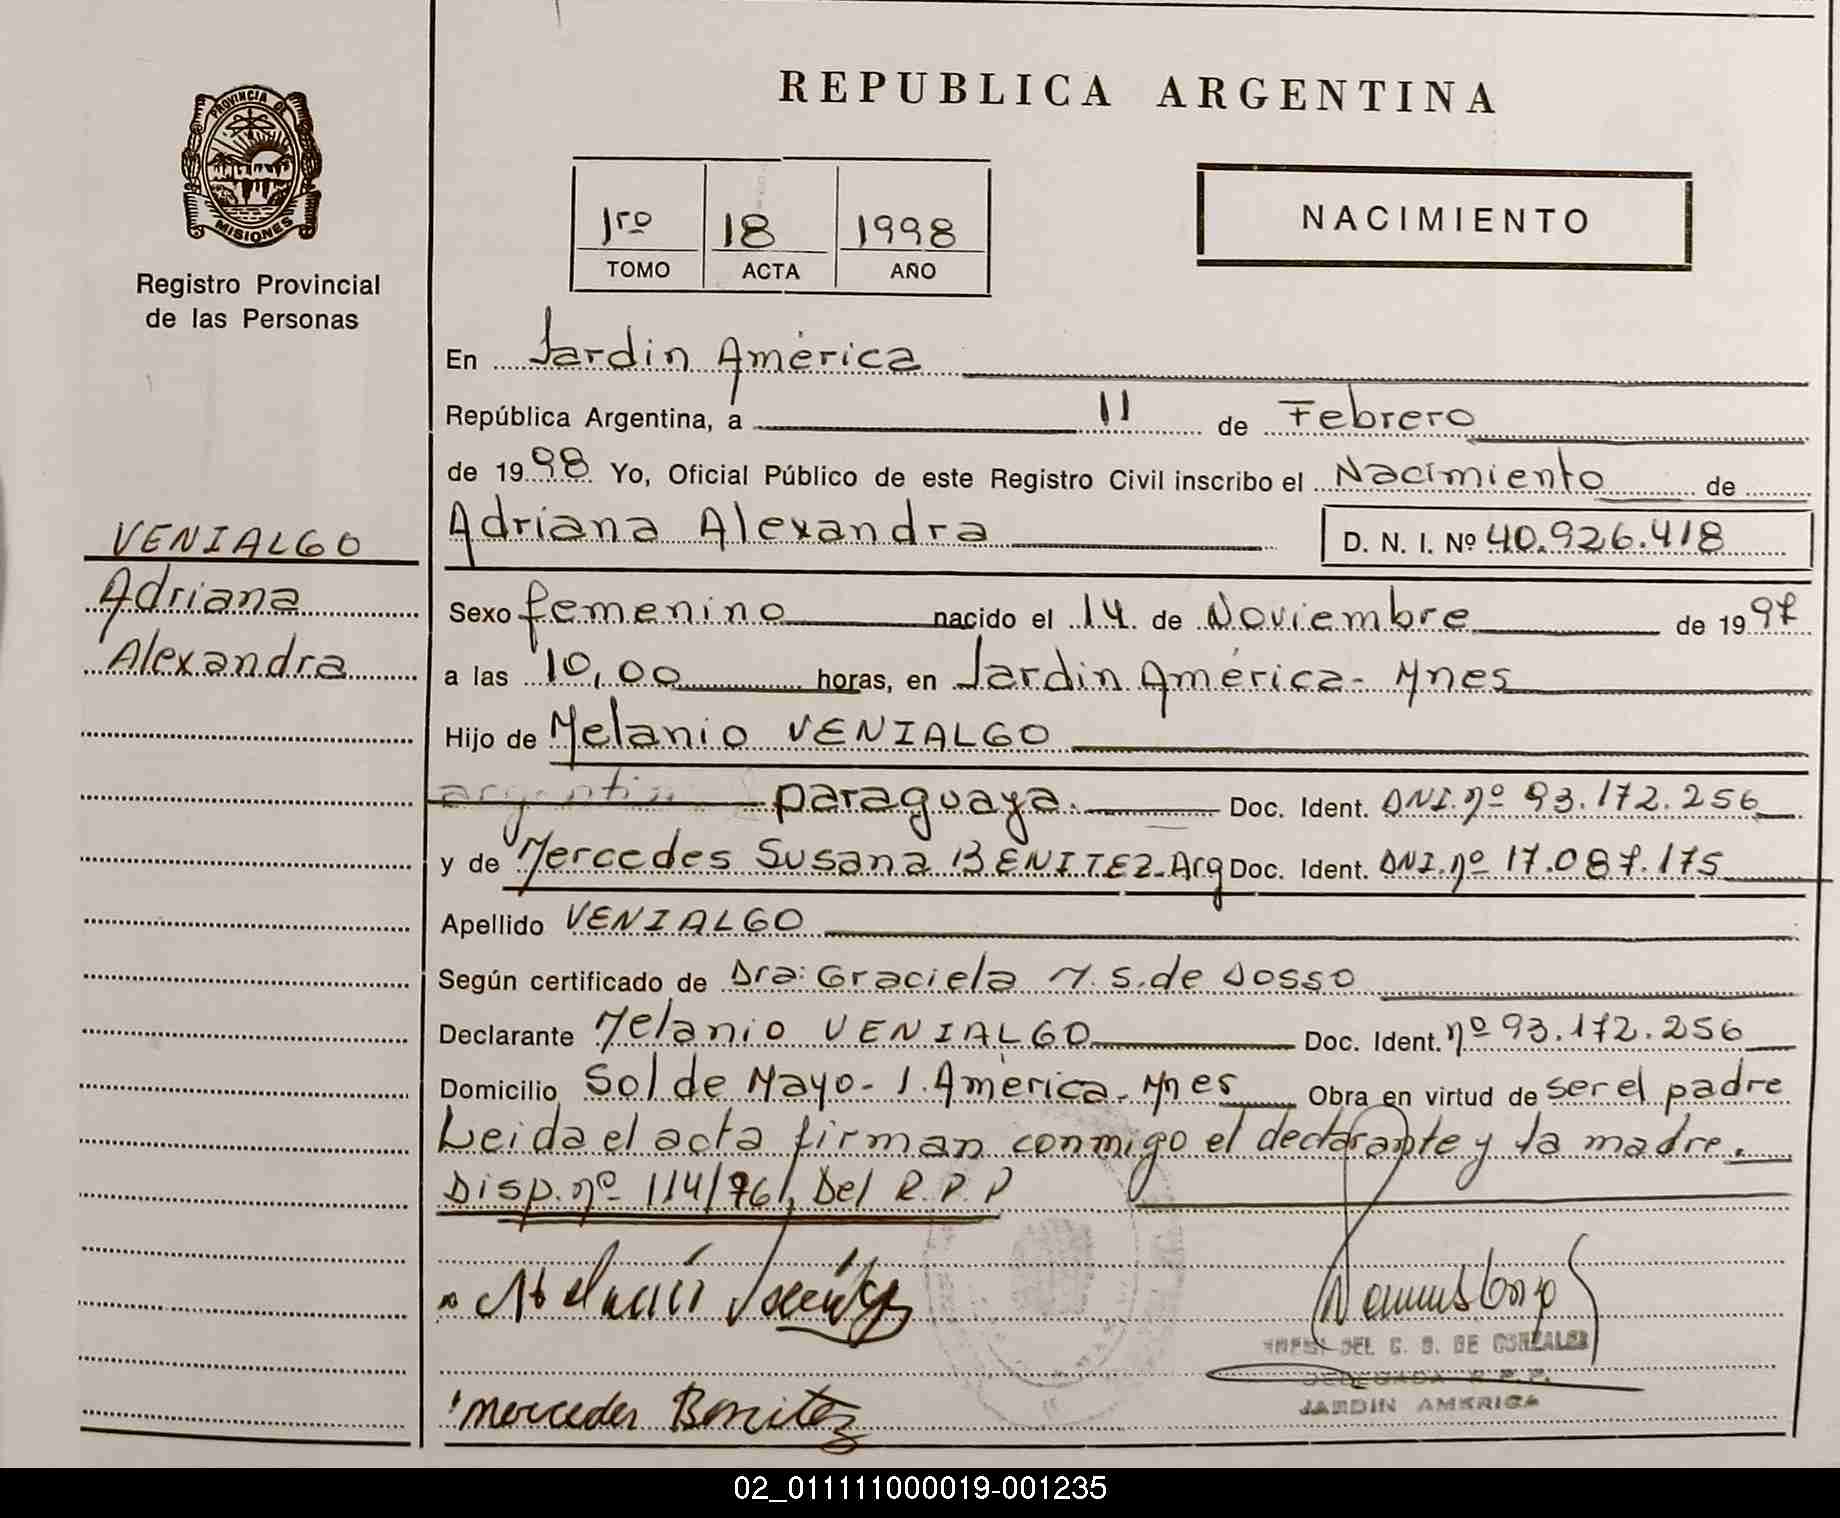 PROVINCIA DE
MISIONES
Registro Provincial
de las Personas
VENIALGO
Adriana
Alexandra
REPUBLICA ARGENTINA
1ro 18 1998
TOMO ACTA AÑO
NACIMIENTO
En Jardin América
República Argentina, a 11 de Febrero
de 1998 Yo, Oficial Público de este Registro Civil inscribo el Nacimiento de
Adriana Alexandra D. N. I. Nº 40.926.418
Sexo femenino nacido el 14 de Noviembre de 1997
a las 10,00 horas, en Jardin América - Mnes
Hijo de Melanio VENIALGO
paraguaya. Doc. Ident. DNI. nº 93.172.256
y de Mercedes Susana BENITEZ - Arg Doc. Ident. DNI. nº 17.087.175
Apellido VENIALGO
Según certificado de Dra: Graciela M. S. de Dosso
Declarante Melanio VENIALGO Doc. Ident. nº 93.172.256
Domicilio Sol de Mayo - J. América - Mnes Obra en virtud de ser el padre
Leida el acta firman conmigo el declarante y la madre.
Disp. nº 114/76, Del R.P.P
DEL C. B. DE GONZALEZ
DELEGADA R.P.P.
JARDIN AMERICA
Mercedes Benitez
02_011111000019-001235